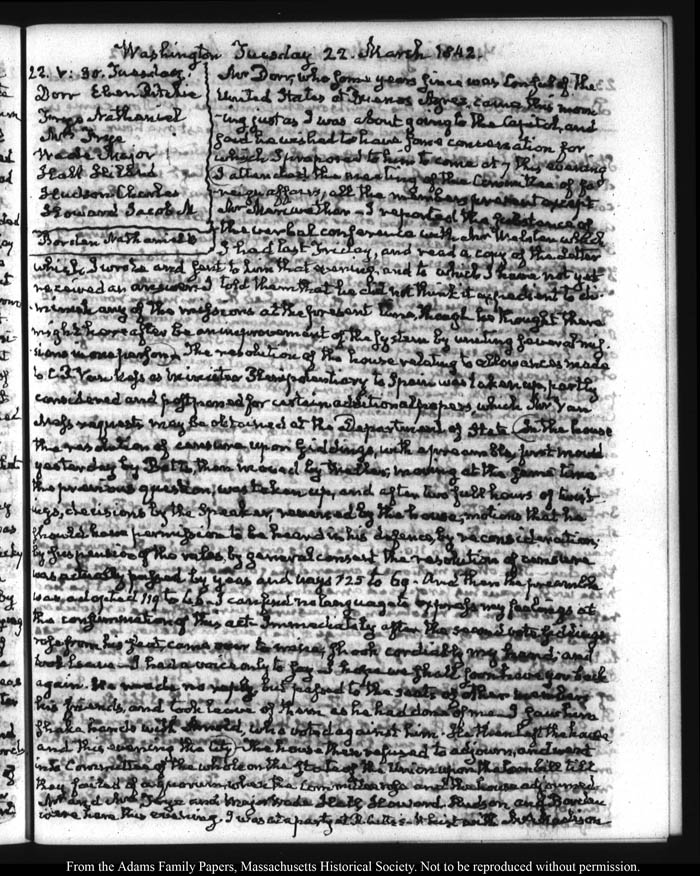 Washington Tuesday 22. March 1842.
22. V: 30. Tuesday.
Dorr Eben Ritchie
Frye Nathaniel
Mrs Frye
Wade Major
Hall Hiland
Hudson Charles
Howard Jacob M
Borden Nathaniel B
Mr Dorr, who some years since was Consul of the
United States at Buenos Ayres, came this morn-
-ing just as I was about going to the Capitol, and
said he wished to have some conversation for
which I proposed to him to come at 7 this evening
I attended the meeting of the Committee of fo-
reign affairs, all the members present except
Mr Meriwether - I reported the substance of
the verbal conference with Mr Webster which
I had last Friday, and read a copy of the letter
which I wrote and sent to him that evening, and to which I have not yet
received an answer. I told them that he did not think it expedient to di-
-minish any of the missions at the present time, though he thought there
might hereafter be an improvement of the system by uniting several mis-
sions in one person. The resolution of the house relating to allowances made
to C. P. Van Ness as minister Plenipotentiary to Spain was taken up, partly
considered and postponed for certain additional papers which Mr Van
Ness requests may be obtained at the Department of State (In the house
the resolution of censure upon Giddings, with a preamble, first moved
yesterday by Botts, then moved by Weller, moving at the same time
the previous question, was taken up, and after two full hours of
decisions by the Speaker, reversed by the house, motions that he
should have permission to be heard in his defence, by reconsideration,
by suspension of the rules, by general consent the resolution of censure
was actually passed by yeas and nays 125 to 69 - And then the preamble
was adopted 119 to I can find no language to express my feelings at
the consummation of this act - Immediately after the second vote, Giddings
rose from his seat, came over to mine, shook cordially my hand, and
took leave - I had a voice only to say - I hope we shall soon have you back
again. He made no reply, but passed to the seats of other members
his friends, and took leave of them as he had done of me - I saw him
shake hands with Arnold, who voted against him - He then left the house
and this evening the City) - The house then refused to adjourn, and went
into Committee of the whole on the State of the Union upon the loan bill till
they failed of a quorum, when the Committee rose and the house adjourned
Mr and Mrs Frye and Major Wade Hall, Howard Hudson and Borden
were here this evening. I was at a party at R. Cutts's - Whist with Mrs Madison
From the Adams Family Papers, Massachusetts Historical Society. Not to be reproduced without permission.